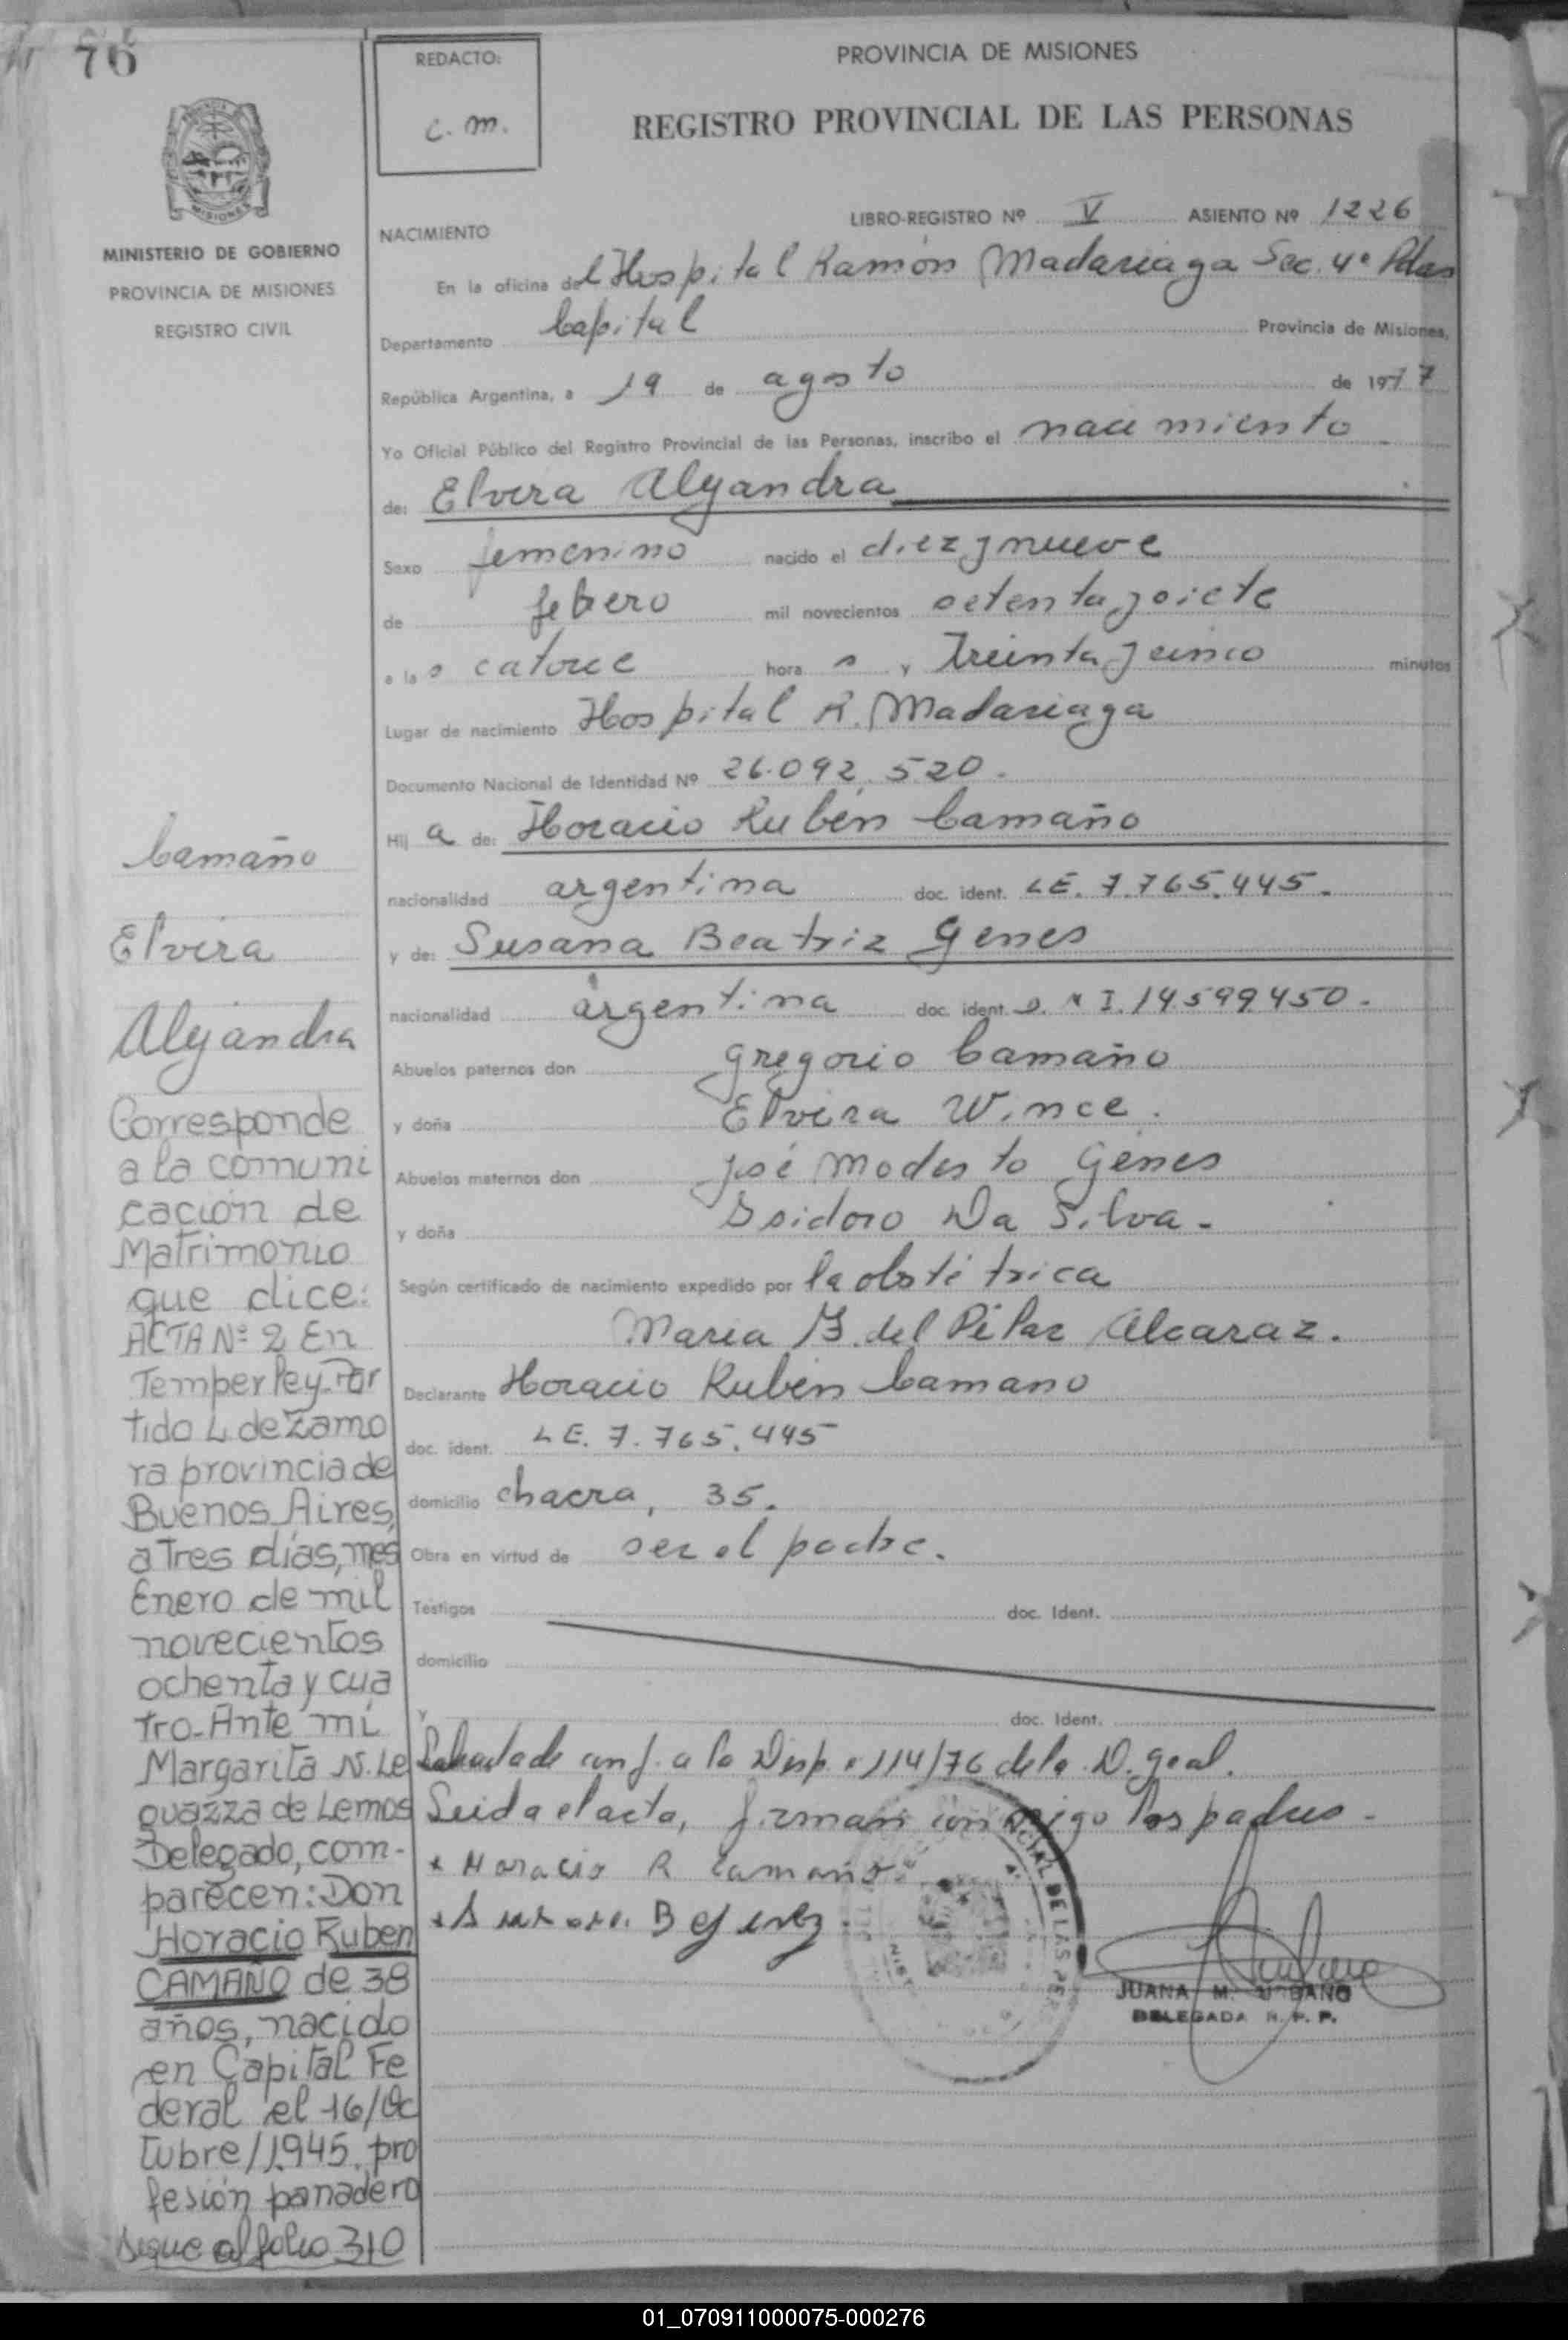 76
REDACTO:
c. m.
PROVINCIA DE MISIONES
REGISTRO PROVINCIAL DE LAS PERSONAS
MINISTERIO DE GOBIERNO
PROVINCIA DE MISIONES
REGISTRO CIVIL
LIBRO-REGISTRO Nº V ASIENTO Nº 1226
NACIMIENTO
En la oficina del Hospital Ramón Madariaga Sec. 4ª Pdas
Departamento Capital Provincia de Misiones,
República Argentina, a 19 de agosto de 1977
Yo Oficial Público del Registro Provincial de las Personas, inscribo el nacimiento
de: Elvira Alejandra
Sexo femenino nacido el diez y nueve
de febrero mil novecientos setenta y siete
a las catorce horas y treinta y cinco minutos
Lugar de nacimiento Hospital R. Madariaga
Documento Nacional de Identidad Nº 26.092.520.
Hija de: Horacio Rubén Camaño
nacionalidad argentina doc. ident. LE. 7.765.445.
y de: Susana Beatriz Genes
nacionalidad argentina doc. ident. D.N I. 14.599.450.
Abuelos paternos don Gregorio Camaño
y doña Elvira Wince.
Abuelos maternos don José Modesto Genes
y doña Isidoro Da Silva.
Según certificado de nacimiento expedido por la obstétrica
María del Pilar Alcaraz.
Declarante Horacio Rubén Camano
doc. ident. LE. 7.765.445
domicilio chacra, 35.
Obra en virtud de ser el padre.
Testigos doc. Ident.
domicilio
y doc. Ident.
conf. a la Disp. 114/76 de la D. gral.
Leida el acta, firman conmigo los padres.
Horacio R Camaño
JUANA M. URBANO
DELEGADA R. P. P.
Camaño
Elvira
Alejandra
Corresponde
a la comuni
cación de
Matrimonio
que dice:
ACTA Nº 2 En
Temperley-Par
tido L. de Zamo
ra provincia de
Buenos Aires,
a Tres días, mes
Enero de mil
novecientos
ochenta y cua
tro-Ante mí
Margarita N. Le
guazza de Lemos
Delegado, com-
parecen: Don
Horacio Ruben
CAMAÑO de 38
años, nacido
en Capital Fe
deral el 16/Oc
tubre/1945. pro
fesión panadero
Sigue al folio 310
01_070911000075-000276